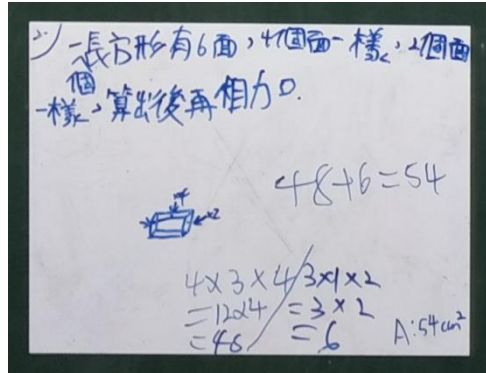 2.
一長方形有6面,4個面一樣,2個面
個
一樣,算出後再相加。
48+6=54
×4
×2
4×3×4
=12×4
=48
3×1×2
=3×2
=6
A:54cm²